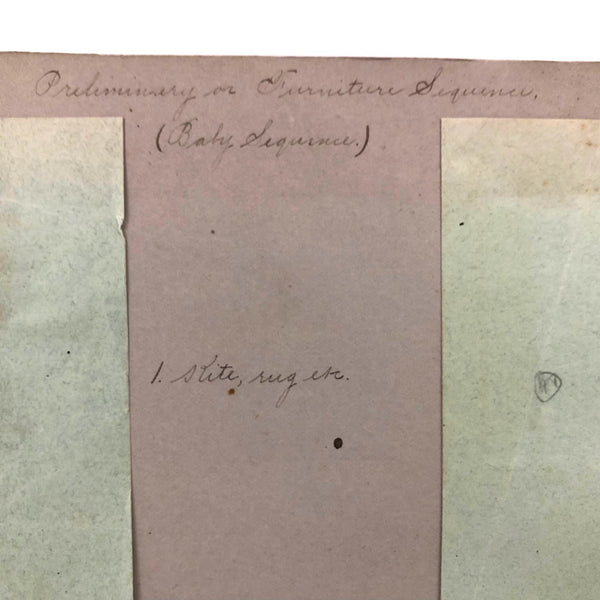 Preliminary or Furniture Sequence.
(Baby Sequence.)
1. Kite, rug etc.